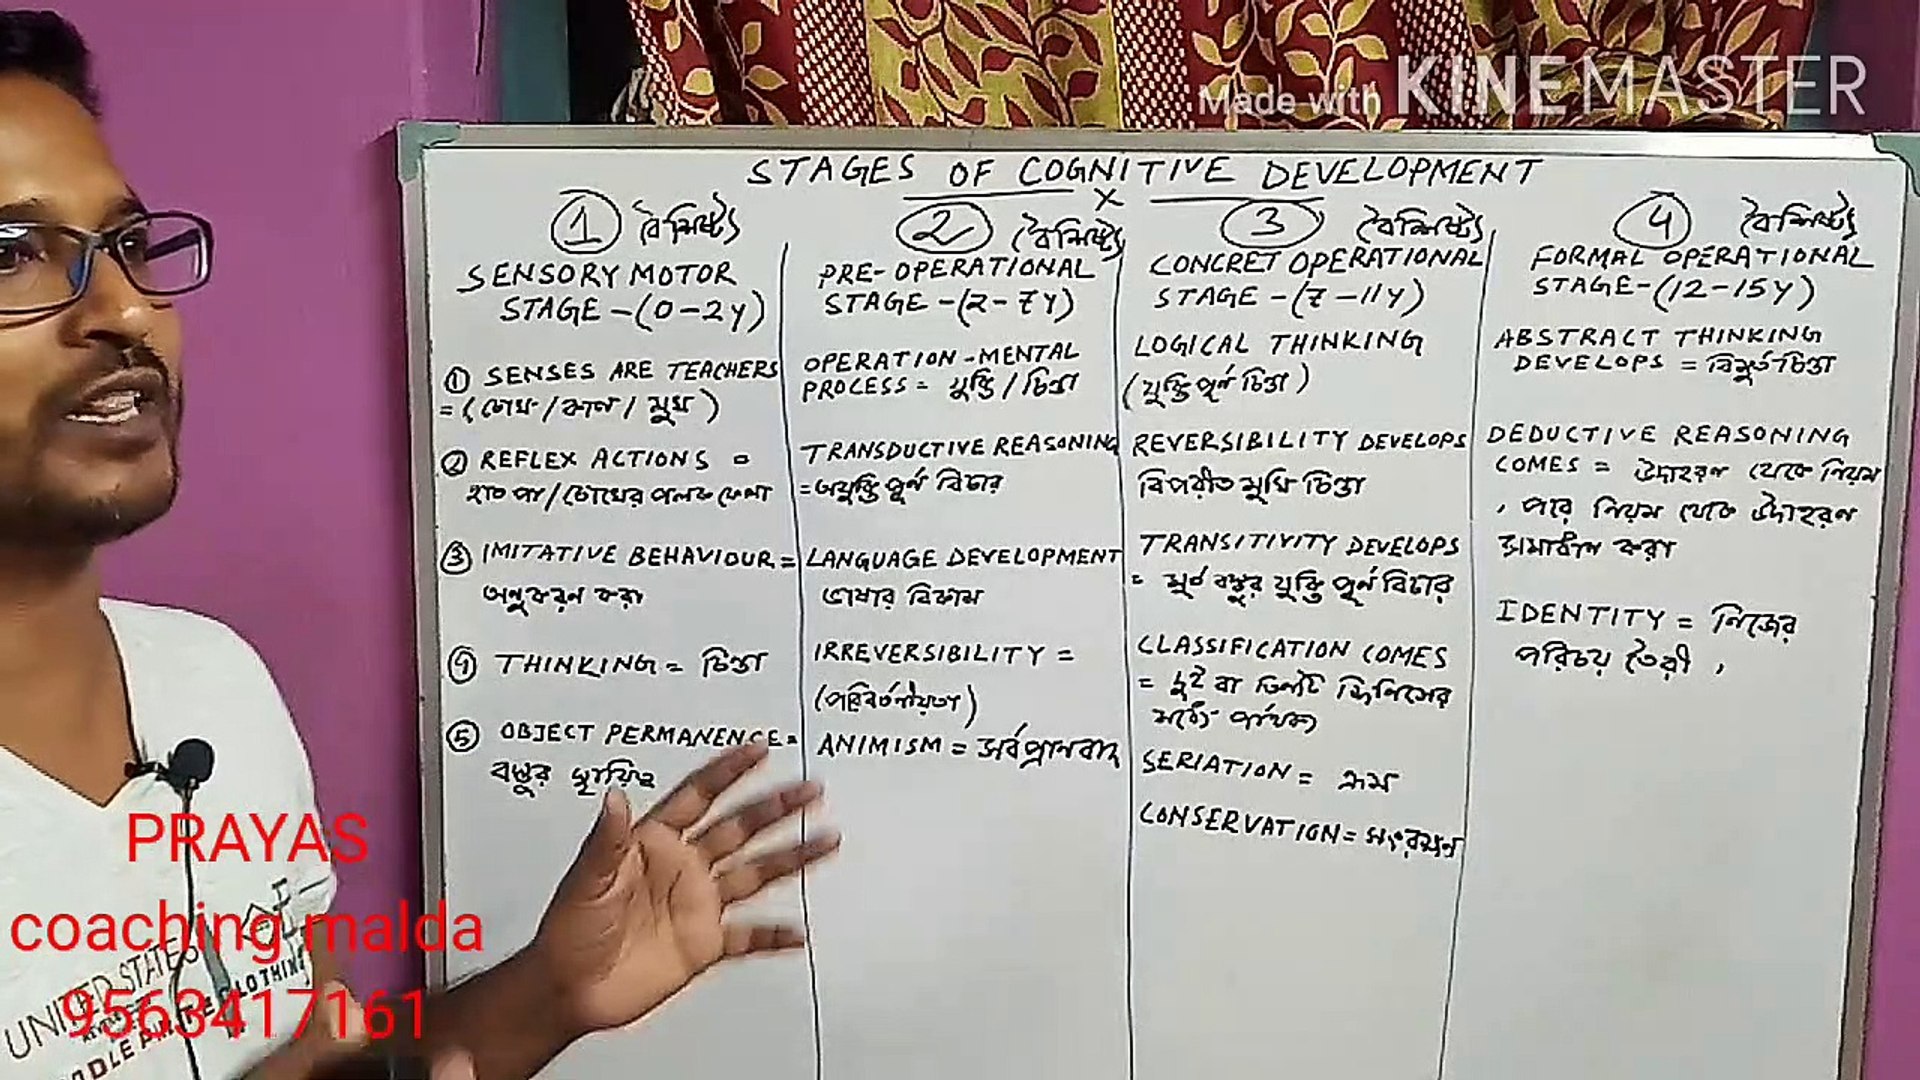 Made with KINEMASTER
STAGES OF COGNITIVE DEVELOPMENT
X
1 বৈশিষ্ট্য
SENSORY MOTOR
STAGE - (0-2Y)
① SENSES ARE TEACHERS
= (চোখ / কান / মুখ)
② REFLEX ACTIONS =
হাত পা / চোখের পলক ফেলা
③ IMITATIVE BEHAVIOUR =
অনুকরন করা
④ THINKING = চিন্তা
⑤ OBJECT PERMANENCE =
বস্তুর স্থায়িত্ব
2 বৈশিষ্ট্য
PRE-OPERATIONAL
STAGE - (2-7Y)
OPERATION - MENTAL
PROCESS = যুক্তি / চিন্তা
TRANSDUCTIVE REASONING
= অযুক্তি পূর্ন বিচার
LANGUAGE DEVELOPMENT
ভাষার বিকাশ
IRREVERSIBILITY =
ANIMISM = সর্বপ্রানবাদ
3 বৈশিষ্ট্য
CONCRET OPERATIONAL
STAGE - (7-11Y)
LOGICAL THINKING
(যুক্তি পূর্ন চিন্তা)
REVERSIBILITY DEVELOPS
বিপরীত মুখি চিন্তা
TRANSITIVITY DEVELOPS
= মূর্ত বস্তুর যুক্তি পূর্ন বিচার
CLASSIFICATION COMES
= দুই বা তিনটি জিনিসের
মধ্যে পার্থক্য
SERIATION = ক্রম
CONSERVATION = সংরক্ষণ
4 বৈশিষ্ট্য
FORMAL OPERATIONAL
STAGE - (12-15Y)
ABSTRACT THINKING
DEVELOPS = বিমূর্ত চিন্তা
DEDUCTIVE REASONING
COMES = উদাহরন থেকে নিয়ম
, পরে নিয়ম থেকে উদাহরন
সমাধান করা
IDENTITY = নিজের
পরিচয় তৈরী ,
PRAYAS
coaching malda
9563417161
UNITED STATES
CLOTHING